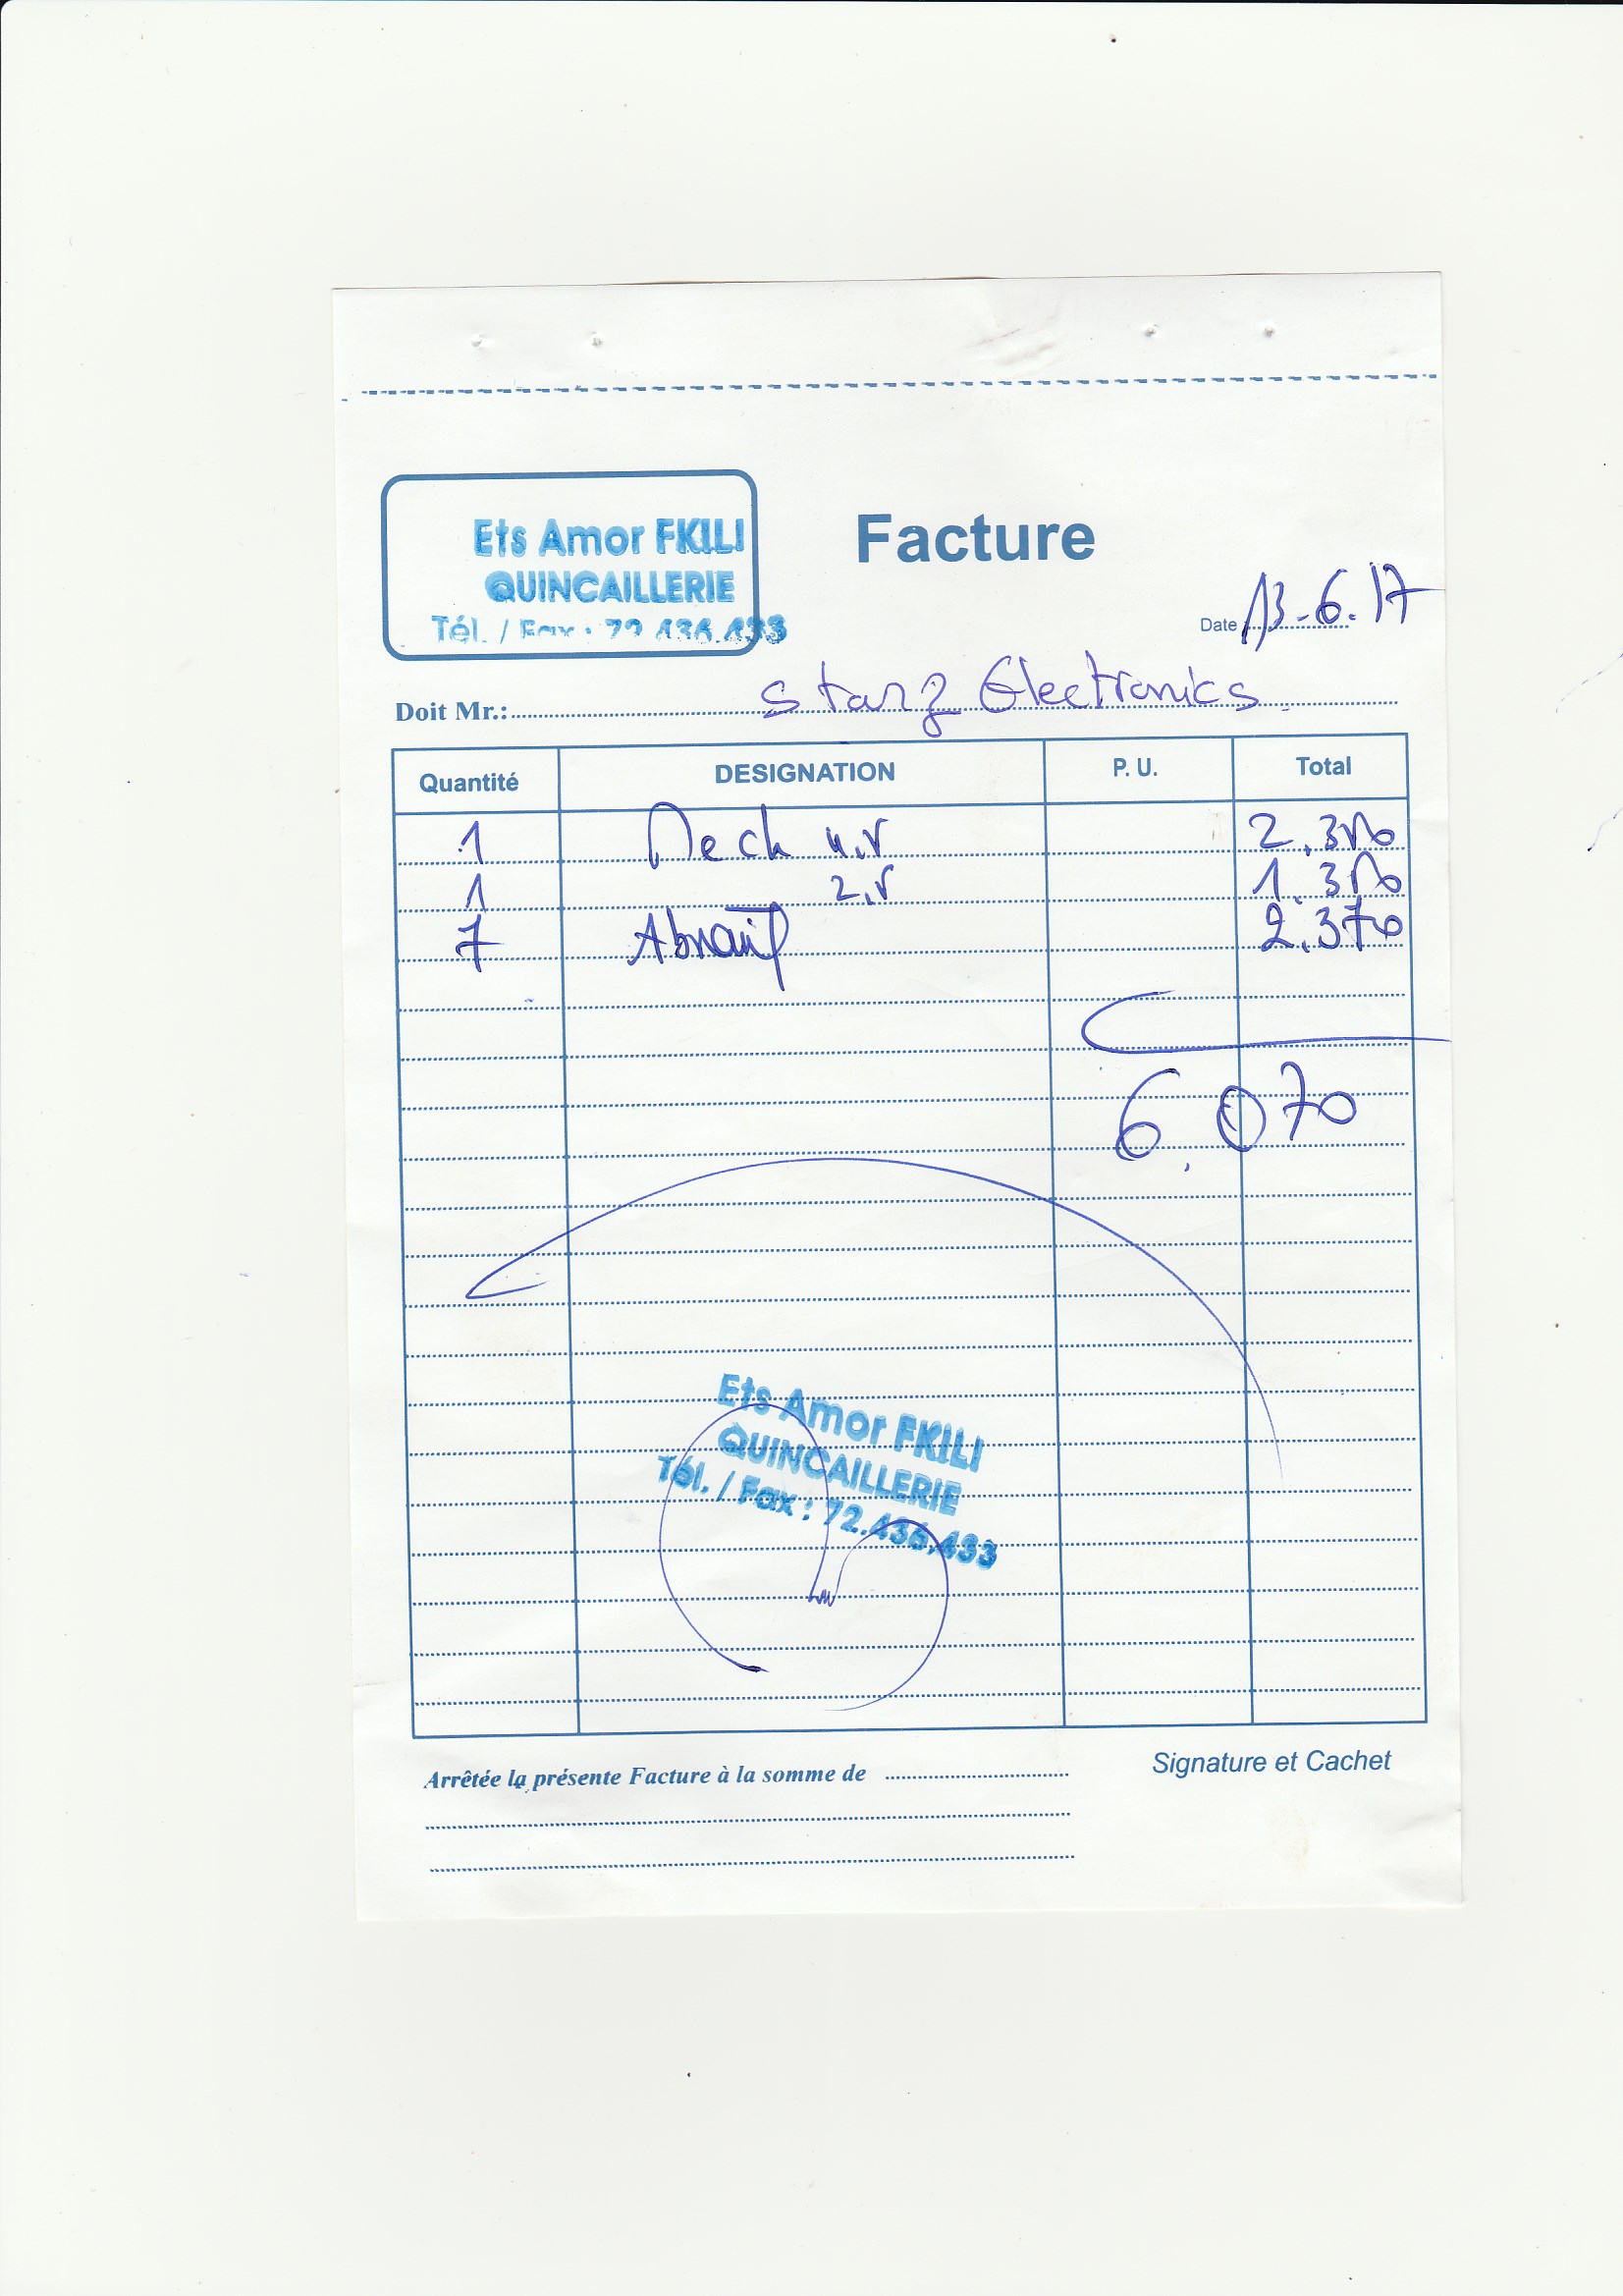 Ets Amor FKILI
QUINCAILLERIE
Tél. / Fax : 72.436.433
Facture
Date 13-6.17
Doit Mr.: Starz Electronics
Quantité DESIGNATION P. U. Total
1 Mech 4,5 2.350
1 2,5 1.350
7 2.370
6,070
Ets Amor FKILI
QUINCAILLERIE
Tél. / Fax : 72.436.433
Arrêtée la présente Facture à la somme de
Signature et Cachet